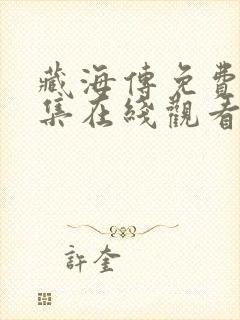 藏海傳免費
集在綫觀看
許奎